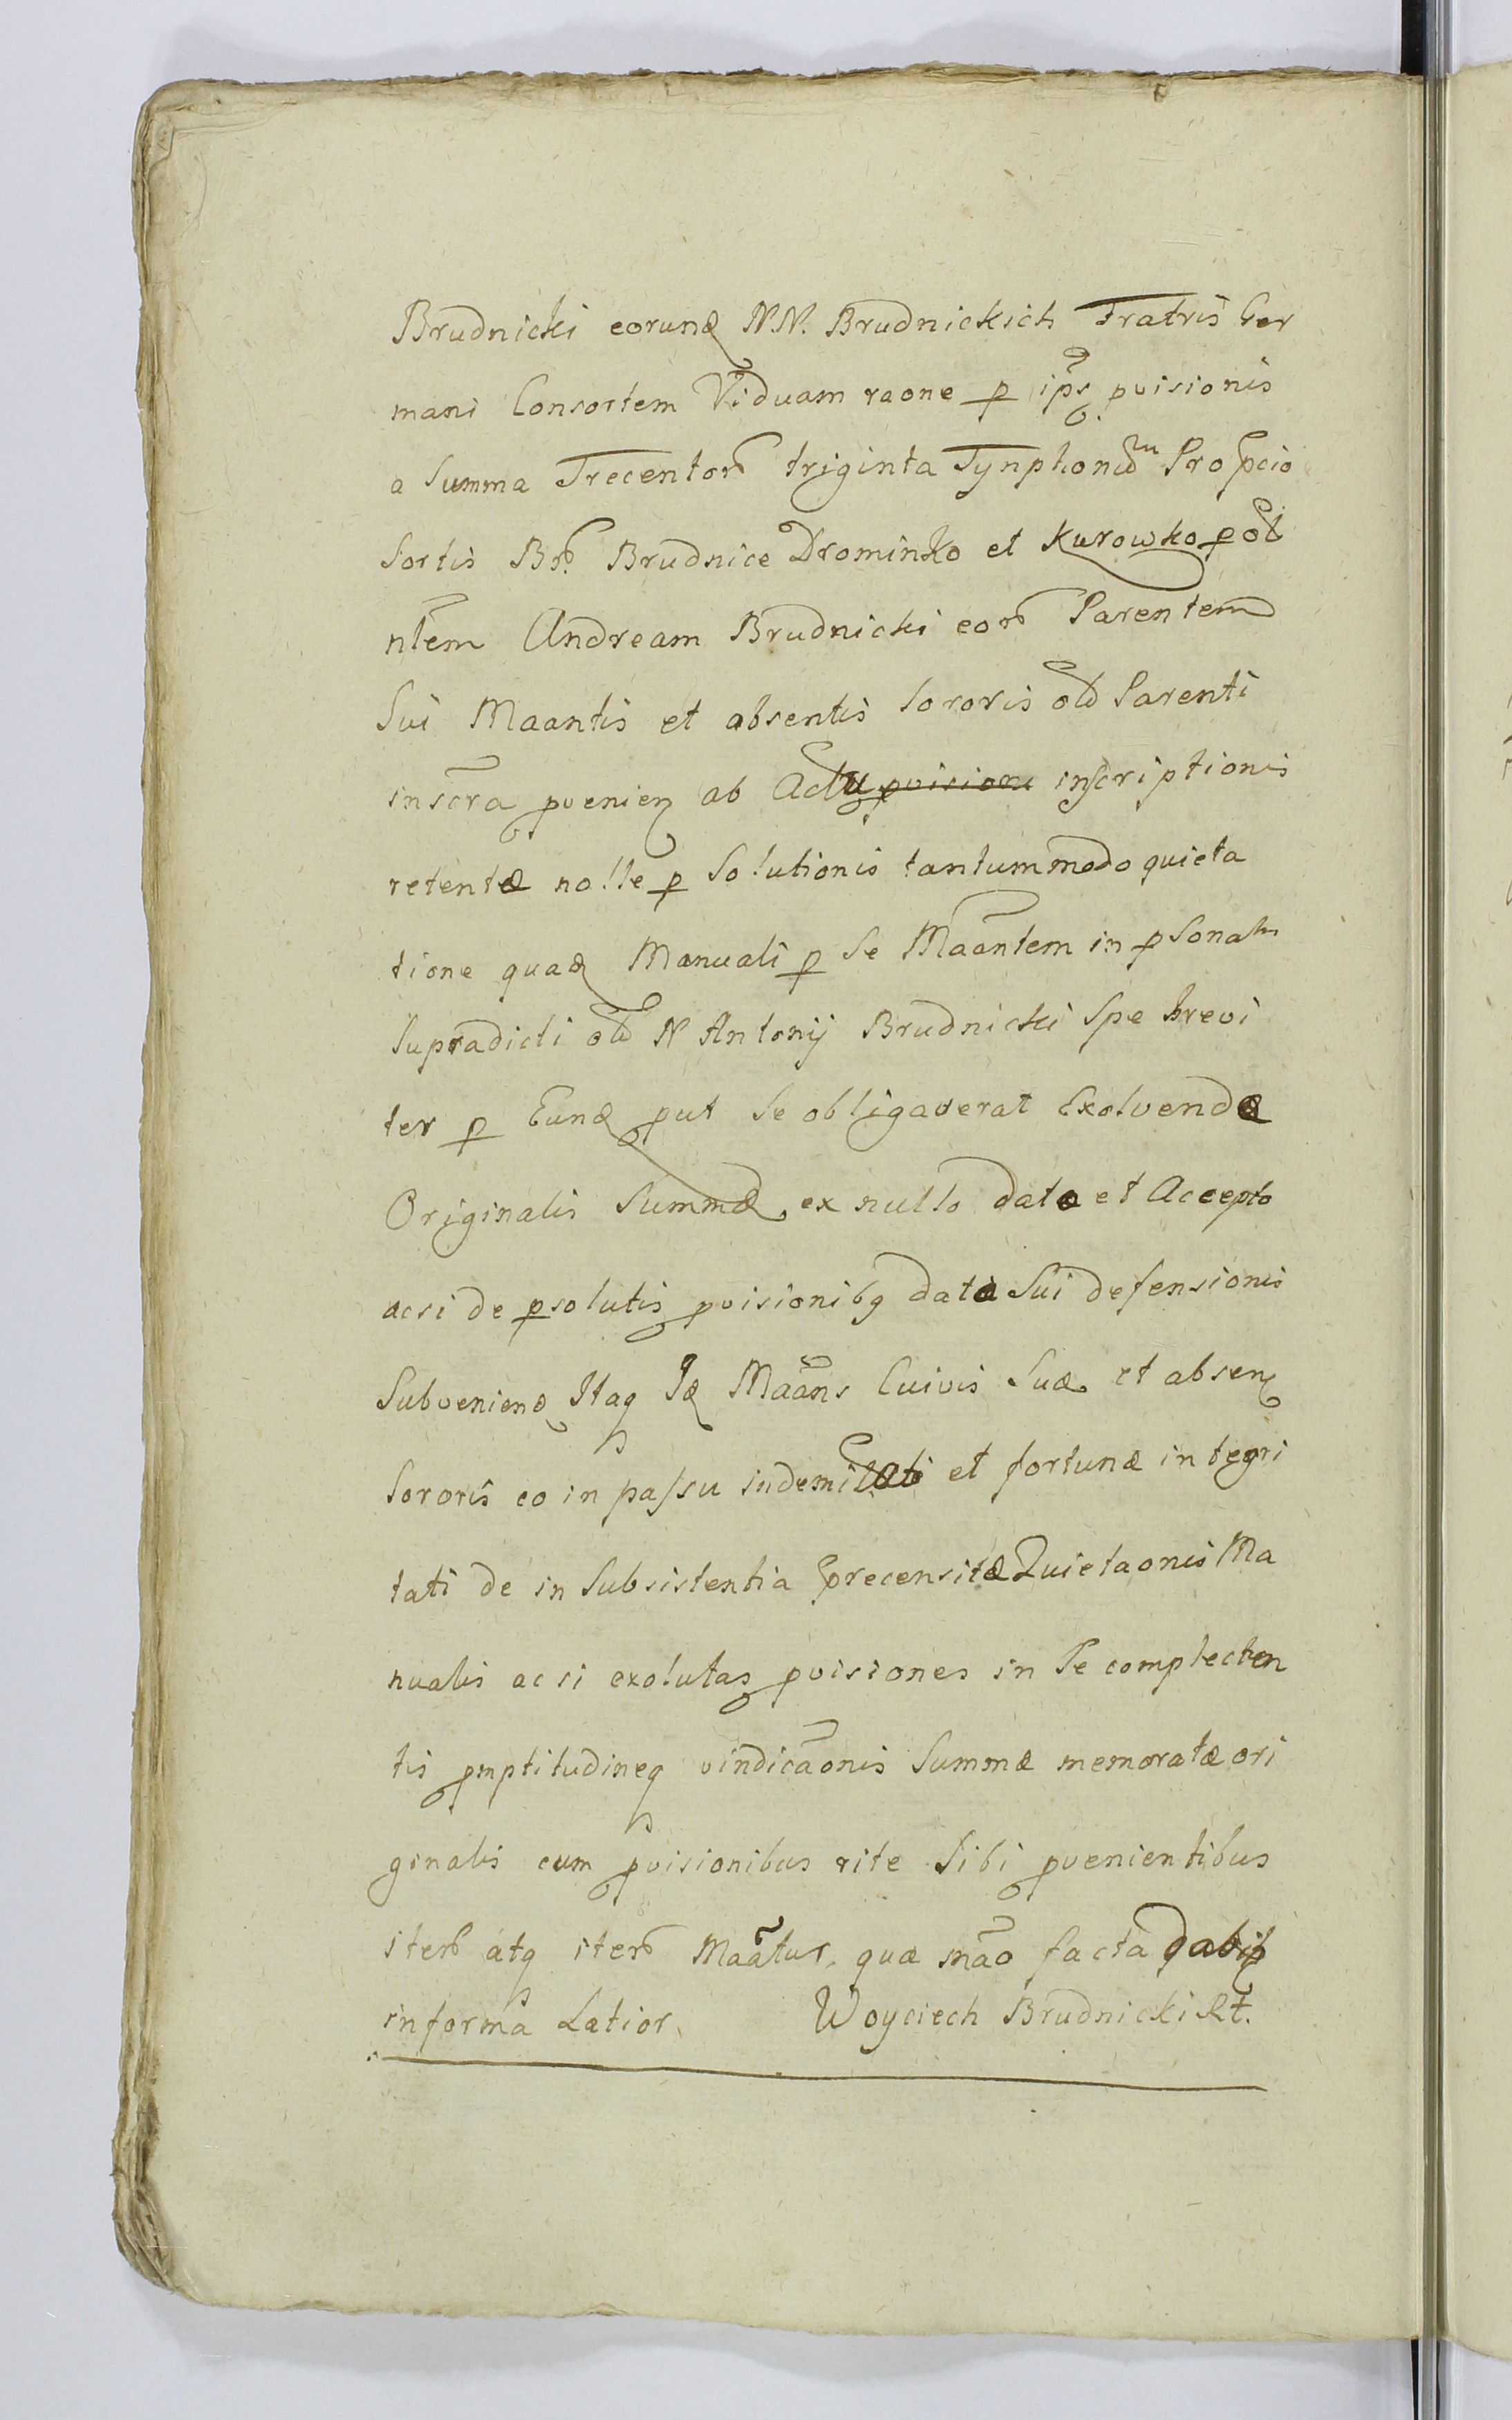 Brudnicki eorund N.N. Brudnickich Fratris Ger
mani Consortem Viduam raone p ips pvisionis
a Summa Trecentor triginta Tynphon Pro pcio
Sortis Br. Brudnice Drominko et Kurowko p ol
ntem Andream Brudnicki eor Parentem
Sui Maantis et absentis Sororis old Parenti
inscra pvenien ab Actu pvisione inscriptionis
retentæ nolle p Solutionis tantummodo quieta
tione quad Manuali p Se Maantem in psonam
Supradicti old N Antonij Brudnicki Spe brevi
ter p Eund put Se obligaverat Exolvendæ
Originalis Summæ ex nullo dato et Accepto
acsi de psolutis pvisionibq data Sui defensionis
Subveniend Itaq Id Maans Cuivis Suæ et absen
Sororis eo in passu indemitati et fortunæ integri
tati de in Subsistentia precensitæ Quietaonis Ma
nualis ac si exolutas pvisiones in Se complecten
tis pmptitudineq vindicaonis Summæ memoratæ ori
ginalis cum pvisionibus rite Sibi pvenientibus
iter atq iter Maatur, quæ mao facta dabit
informa Latior. Woyciech Brudnicki Rt.